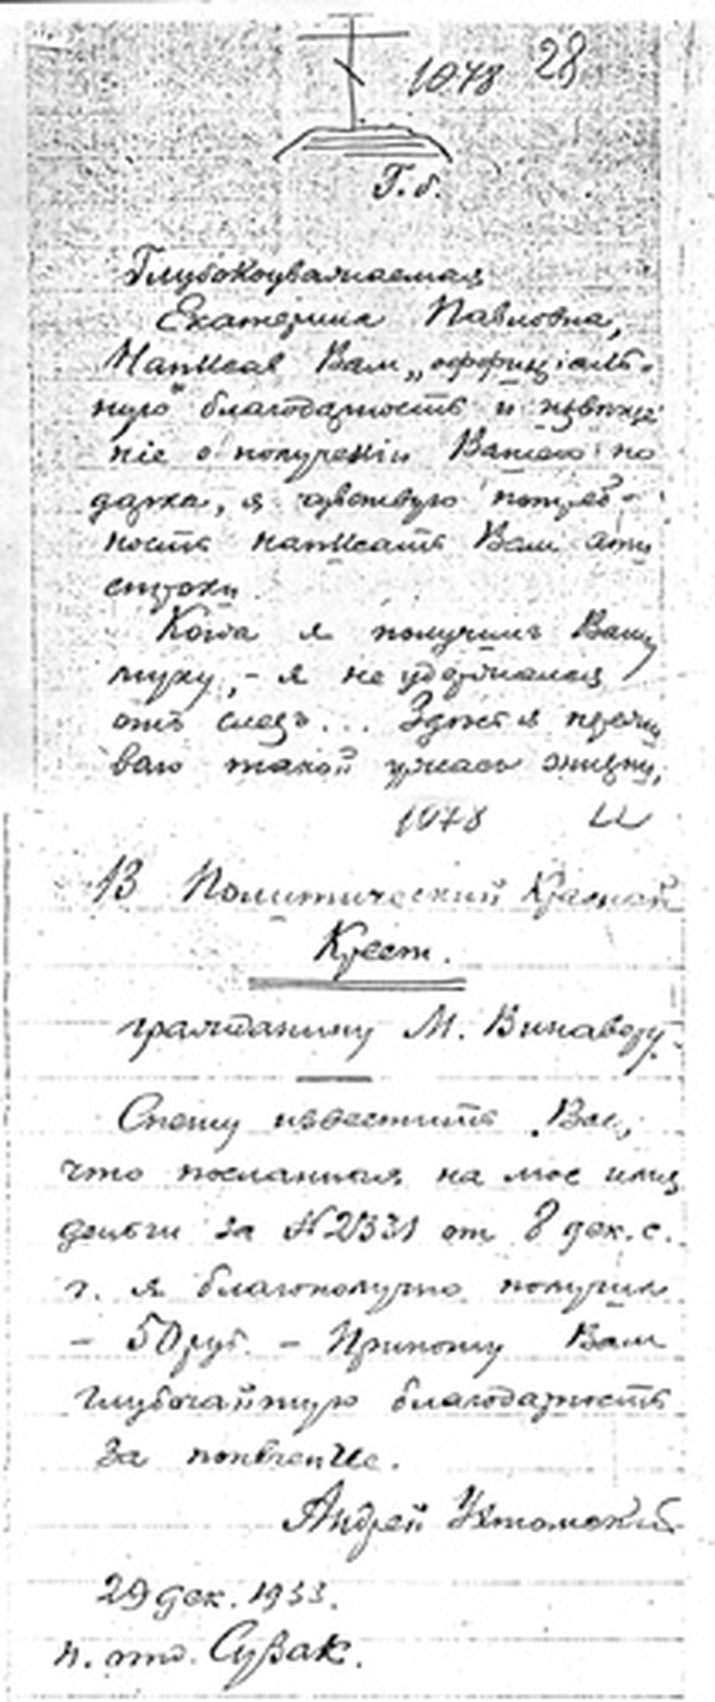 1078 28
Г. б.
Глубокоуважаемая
Екатерина Павловна,
Написав Вам „оффиціаль-
ную" благодарность и извѣще
ніе о полученіи Вашего по
дарка, я чувствую потреб-
ность написать Вам эти
строки.
Когда я получилъ Вашу
муку, - я не удержался
отъ слезъ... Здѣсь я пережи
ваю такой ужасъ жизни,
1078
В Политический Красный
Крест.
гражданину М. Винаверу.
Спешу известить Вас,
что посланныя на мое имя
деньги за № 2331 от 8 дек. с.
г. я благополучно получил
- 50 руб. - Приношу Вам
глубочайшую благодарность
за попечение.
Андрей Ухтомский
29 дек. 1933.
п. отд. Сузак.